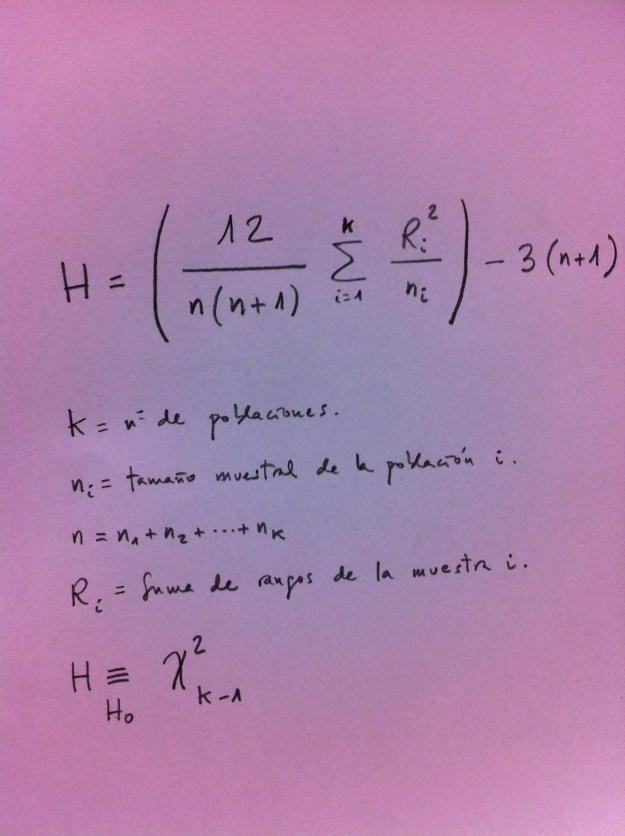 H = ( 12 / n(n+1) ∑_{i=1}^{k} R_i^2 / n_i ) - 3(n+1)
k = nº de poblaciones.
n_i = tamaño muestral de la población i.
n = n_1 + n_2 + ... + n_k
R_i = suma de rangos de la muestra i.
H ≡_{H_0} χ^2_{k-1}